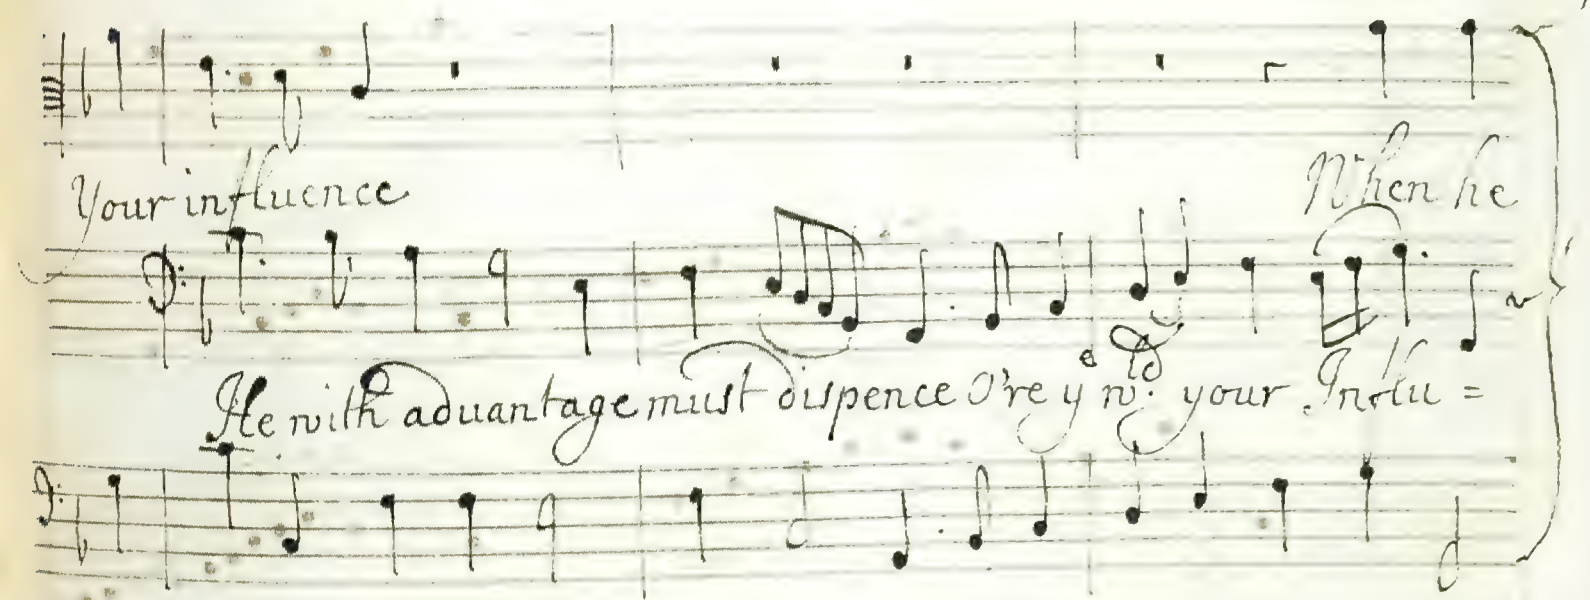 Your influence When he
He with aduantage must dispence O're yᵉ wᵒʳˡᵈ your Influ =